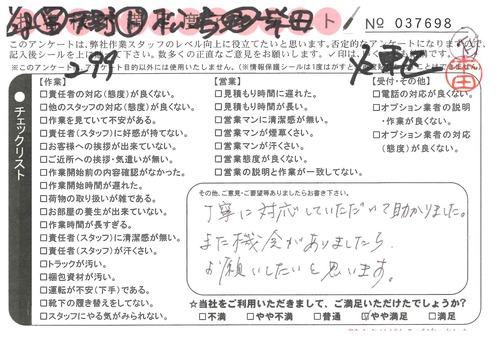 ト
№ 037698
このアンケートは、弊社作業スタッフのレベル向上に役立てたいと思います。否定的なアンケートになりますので、
5.99
チェックリスト
【作業】
□責任者の対応(態度)が良くない。
□他のスタッフの対応(態度)が良くない。
□作業を見ていて不安がある。
□責任者(スタッフ)に好感が持てない。
□お客様への挨拶が出来ていない。
□ご近所への挨拶・気遣いが無い。
□作業開始前の内容確認がなかった。
□作業開始時間が遅れた。
□荷物の取り扱いが雑である。
□お部屋の養生が出来ていない。
□作業時間が長すぎる。
□責任者(スタッフ)に清潔感が無い。
□責任者(スタッフ)が汗くさい。
□トラックが汚い。
□梱包資材が汚い。
□運転が不安(下手)である。
□靴下の履き替えをしてない。
□スタッフにやる気がみられない。
【営業】
□見積もり時間に遅れた。
□見積もり時間が長い。
□営業マンに清潔感が無い。
□営業マンが煙草くさい。
□営業マンが汗くさい。
□営業態度が良くない。
□営業の説明と作業が一致してない。
【受付・その他】
□電話の対応が良くない。
□オプション業者の説明
・作業が良くない。
□オプション業者の対応
(態度)が良くない。
その他、ご意見・ご要望等ありましたらお書き下さい。
丁寧に対応していただいて助かりました。
また機会がありましたら
お願いしたいと思います。
☆当社をご利用いただきまして、ご満足いただけたでしょうか?
□不満 □やや不満 □普通 ☑やや満足 □満足